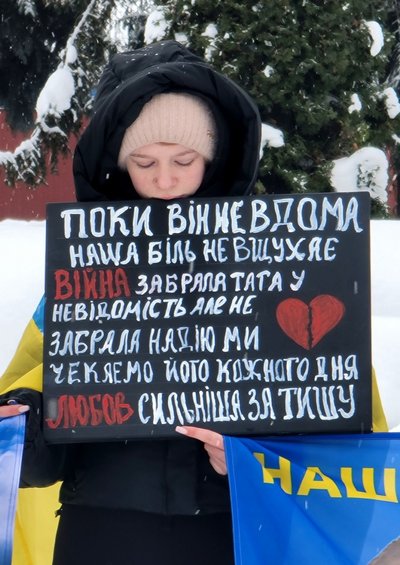 ПОКИ ВІН НЕ ВДОМА
НАША БІЛЬ НЕ ВЩУХАЄ
ВІЙНА ЗАБРАЛА ТАТА У
НЕВІДОМІСТЬ АЛЕ НЕ
ЗАБРАЛА НАДІЮ МИ
ЧЕКАЄМО ЙОГО КОЖНОГО ДНЯ
ЛЮБОВ СИЛЬНІША ЗА ТИШУ
НАШ